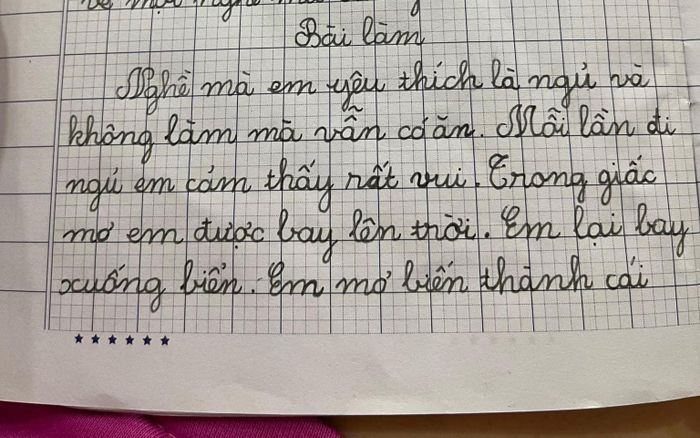 Bài làm
Nghề mà em yêu thích là ngủ và
không làm mà vẫn có ăn. Mỗi lần đi
ngủ em cảm thấy rất vui. Trong giấc
mơ em được bay lên trời. Em lại bay
xuống biển. Em mơ biến thành cái